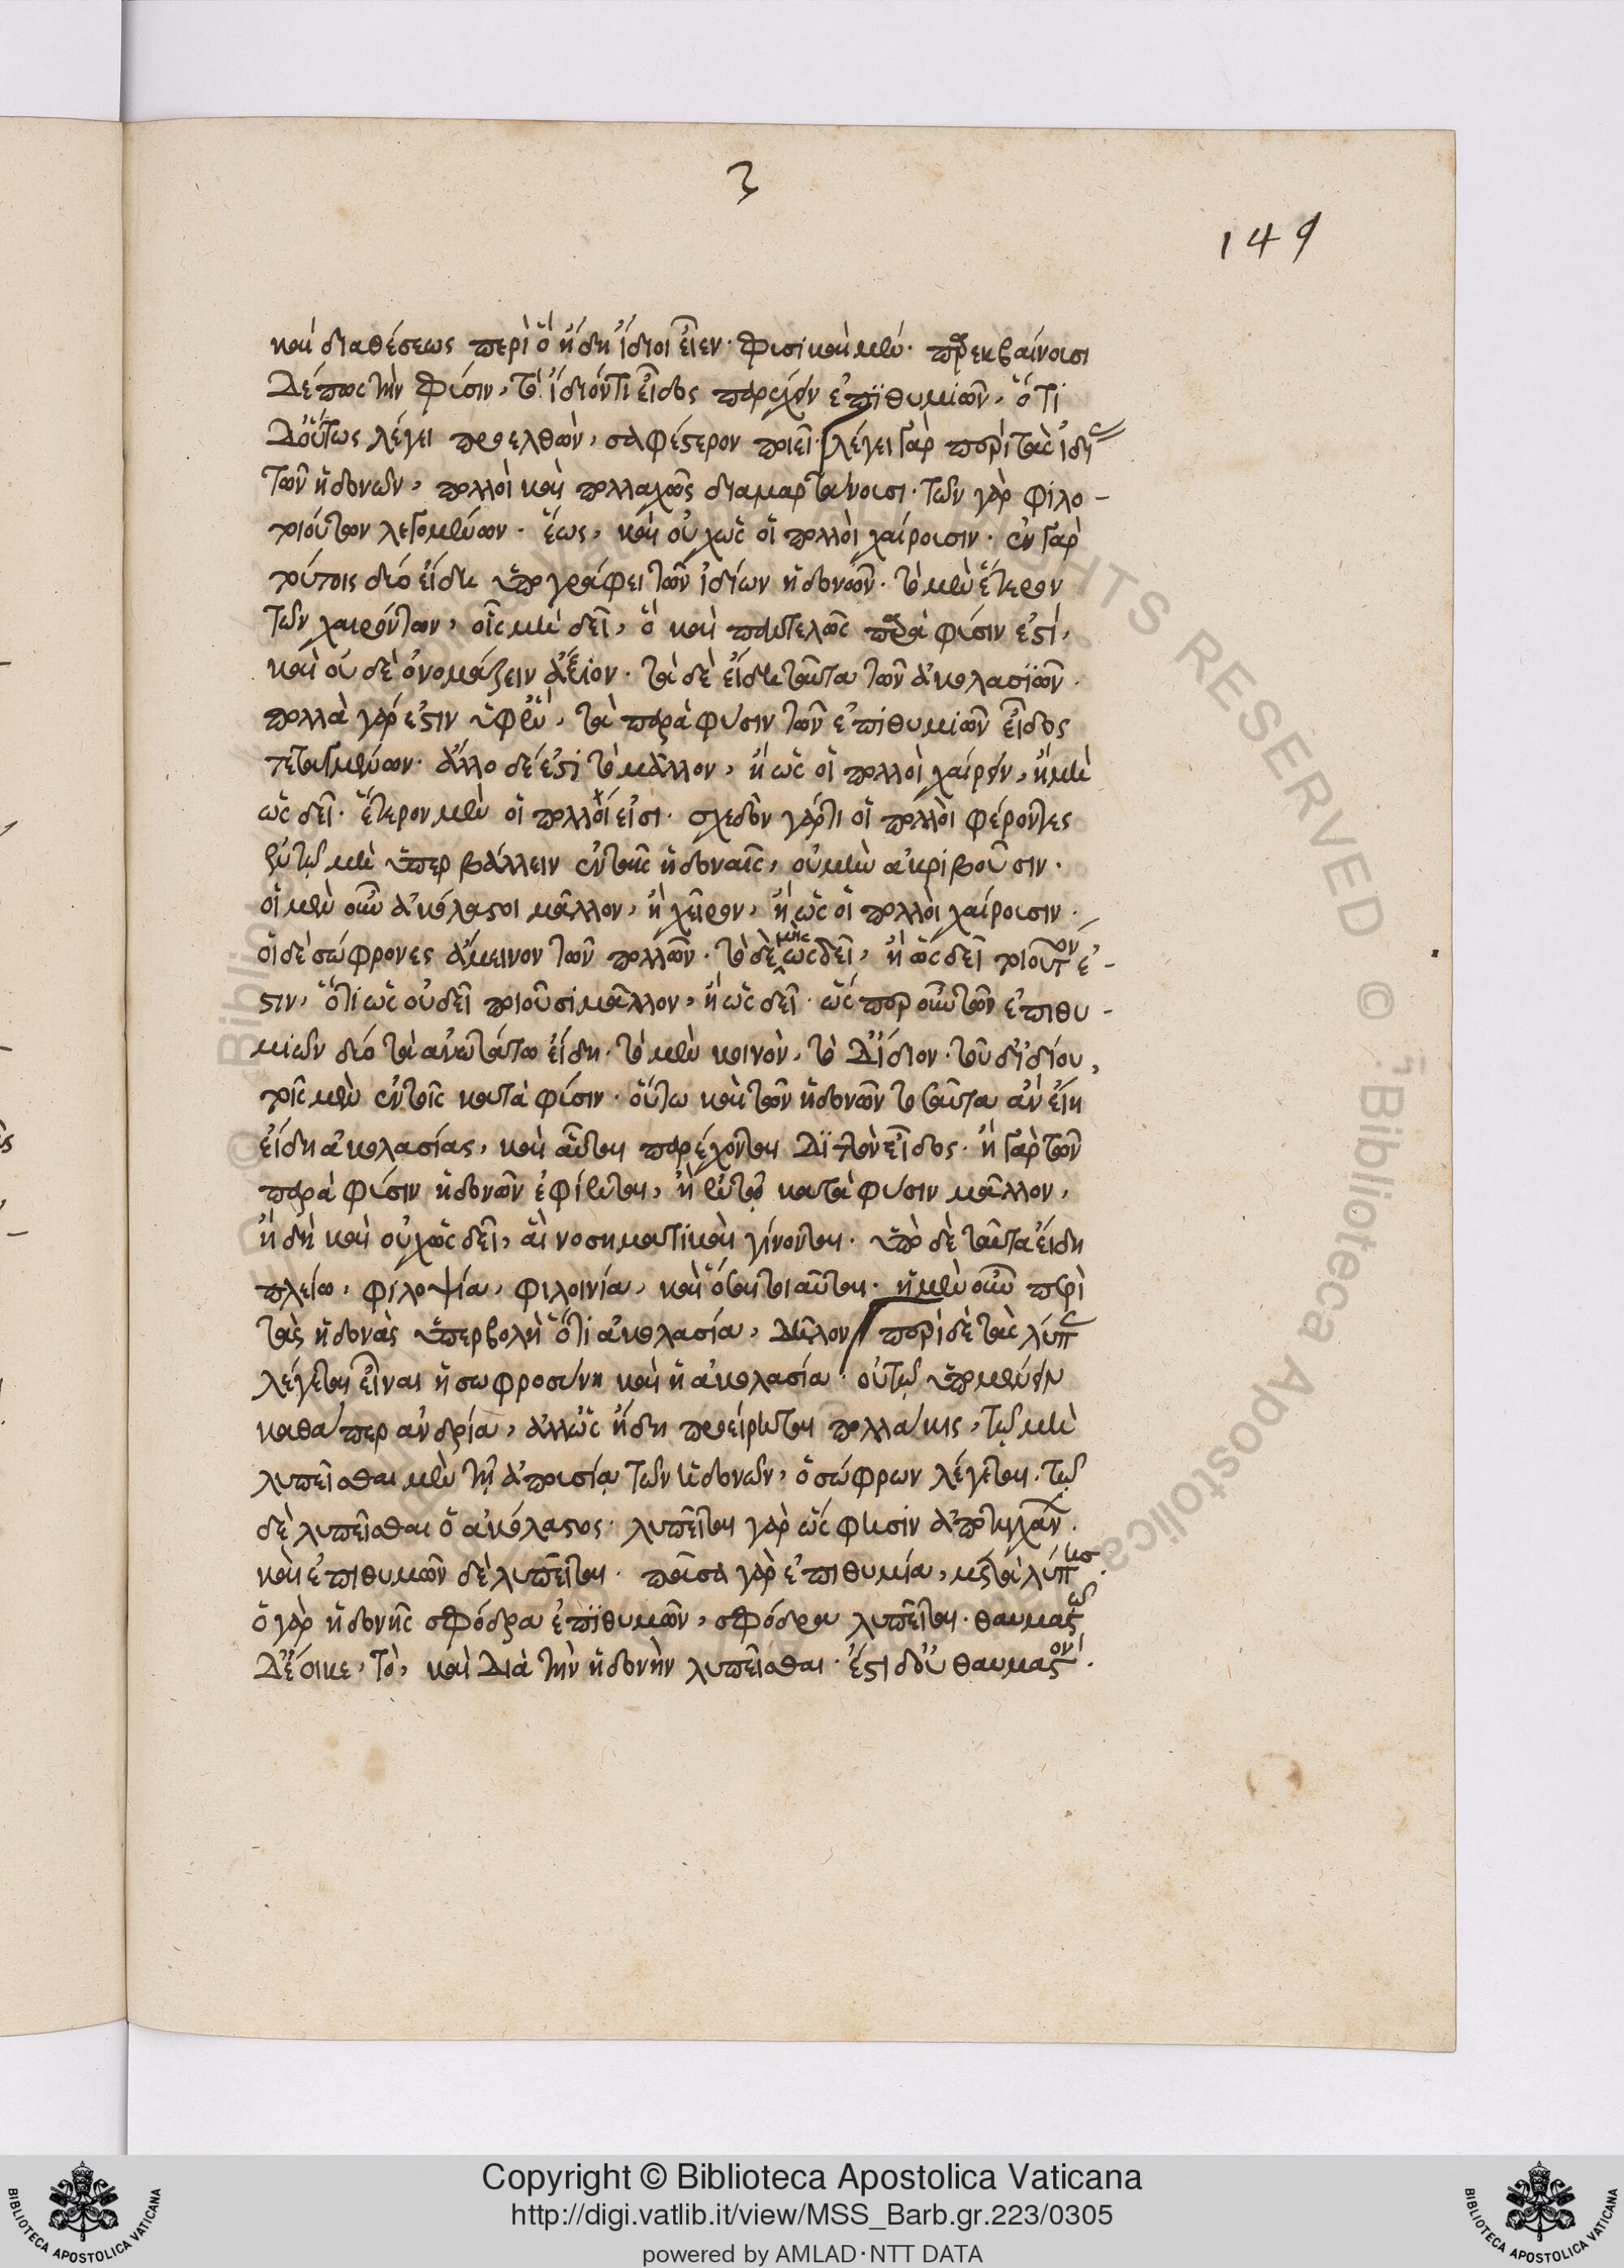 3
149
καὶ διαθέσεως περὶ ὃ ἤδη ἴδιοι εἶεν. φυσικαὶ μέν. παρεκβαίνουσι
δέ πως τὴν φύσιν, τῷ ἰδιόντι εἶδος παρέχειν ἐπιθυμιῶν, ὅτι
δ' οὕτως λέγει προελθὼν, σαφέστερον ποιεῖ. λέγει γὰρ περὶ τὰς ἰδίας
τῶν ἡδονῶν, πολλοὶ καὶ πολλαχῶς διαμαρτάνουσι. τῶν γὰρ φιλο-
τοιούτων λεγομένων. ἕως, καὶ οὐχ ὡς οἱ πολλοὶ χαίρουσιν. ἐν γὰρ
τούτοις δύο εἴδη ὑπογράφει τῶν ἰδίων ἡδονῶν. τὸ μὲν ἕτερον
τῶν χαιρόντων, οἷς μὴ δεῖ, ὃ καὶ παντελῶς παρὰ φύσιν ἐστί,
καὶ οὐδὲ ὀνομάζειν ἄξιον. τὰ δὲ εἴδη ταῦτα τῶν ἀκολασιῶν.
πολλὰ γάρ ἐστιν ὑφ' ἓν, τὰ παρὰ φύσιν τῶν ἐπιθυμιῶν εἶδος
τεταγμένων. ἄλλο δέ ἐστι τὸ μᾶλλον, ἢ ὡς οἱ πολλοὶ χαίρειν, ἢ μὴ
ὡς δεῖ. ἕτερον μὲν οἱ πολλοί εἰσι. σχεδὸν γάρ τι οἱ πολλοὶ φέροντες
ἐν τῷ μὴ ὑπερβάλλειν ἐν ταῖς ἡδοναῖς, οὐ μὴν ἀκριβοῦσιν.
οἱ μὲν οὖν ἀκόλαστοι μᾶλλον, ἢ χεῖρον, ἢ ὡς οἱ πολλοὶ χαίρουσιν.
οἱ δὲ σώφρονες ἄμεινον τῶν πολλῶν. τὸ δὲ μὴ ὡς δεῖ, ἢ ὡς δεῖ τοιοῦτον ἐ-
στιν, ὅτι ὡς οὐ δεῖ ποιοῦσι μᾶλλον, ἢ ὡς δεῖ. ὥσπερ οὖν τῶν ἐπιθυ-
μιῶν δύο τὰ ἀνωτάτω εἴδη. τὸ μὲν κοινὸν, τὸ δ' ἴδιον. τοῦ δ' ἰδίου,
τοῖς μὲν ἐν τοῖς κατὰ φύσιν. οὕτω καὶ τῶν ἡδονῶν τὸ ταῦτα ἂν εἴη
εἴδη ἀκολασίας, καὶ αὗται παρέχονται διπλὸν εἶδος. ἢ γὰρ τῶν
παρὰ φύσιν ἡδονῶν ἐφίεται, ἢ ἐν τῷ κατὰ φύσιν μᾶλλον,
ἤδη καὶ οὐχ ὡς δεῖ, αἳ νοσηματικαὶ γίνονται. ὑπὸ δὲ ταῦτα εἴδη
πλείω, φιλοψία, φιλοινία, καὶ ὅσαι τοιαῦται. ἡ μὲν οὖν περὶ
τὰς ἡδονὰς ὑπερβολὴ ὅτι ἀκολασία, δῆλον. περὶ δὲ τὰς λύπας
λέγεται εἶναι ἡ σωφροσύνη καὶ ἡ ἀκολασία. οὐ τῷ ὑπομένειν
καθάπερ ἀνδρία, ἀλλ' ὡς ἤδη προείρηται πολλάκις, τῷ μὴ
λυπεῖσθαι μὲν τῇ ἀπουσίᾳ τῶν ἡδονῶν, ὁ σώφρων λέγεται. τῷ
δὲ λυπεῖσθαι ὁ ἀκόλαστος. λυπεῖται γὰρ ὥς φησιν ἀποτυγχάνων.
καὶ ἐπιθυμῶν δὲ λυπεῖται. πᾶσα γὰρ ἐπιθυμία, μετὰ λύπης.
ὁ γὰρ ἡδονῆς σφόδρα ἐπιθυμῶν, σφόδρα λυπεῖται. θαυμαστῷ
δ' ἔοικε, τὸ, καὶ διὰ τὴν ἡδονὴν λυπεῖσθαι. ἔστι δ' οὐ θαυμαστόν.
Copyright © Biblioteca Apostolica Vaticana
http://digi.vatlib.it/view/MSS_Barb.gr.223/0305
powered by AMLAD·NTT DATA